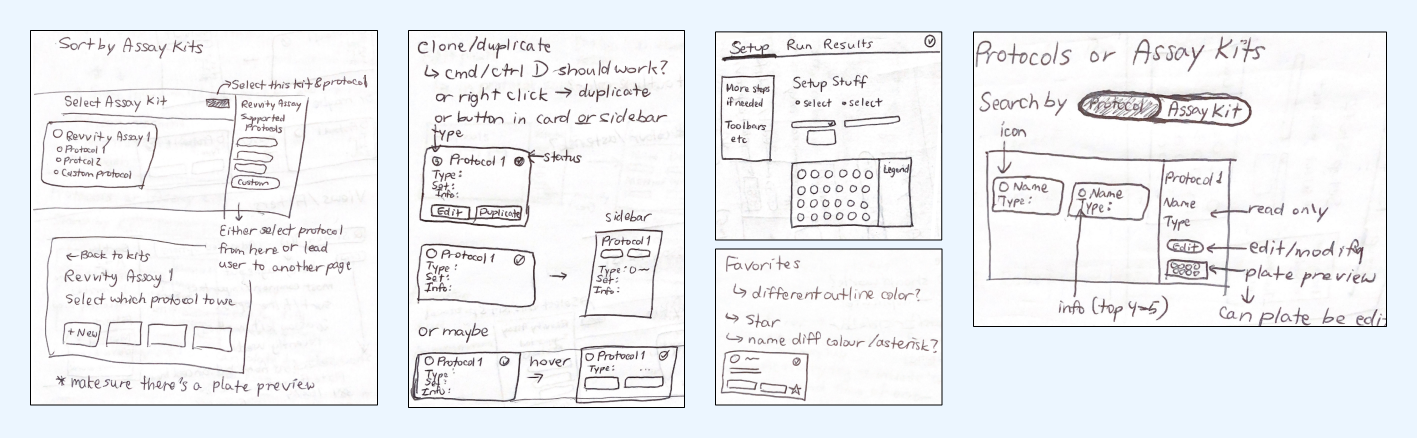 Sort by Assay Kits
Select this kit & protocol
Select Assay Kit
Revvity Assay 1
Protocol 1
Protcol 2
Custom protocol
Revvity Assay
Supported
Protocols
Custom
Either select protocol
from here or lead
user to another page
← Back to kits
Revvity Assay 1
Select which protocol to use
+ New
* make sure there's a plate preview
Clone/duplicate
↳ cmd/ctrl D should work?
or right click → duplicate
or button in card or sidebar
type
Protocol 1
status
Type:
Set:
Info:
Edit
Duplicate
Protocol 1
Type:
Set:
Info:
→
sidebar
Protocol 1
Type:
Set:
Info:
or maybe
Protocol 1
Type:
Set:
Info:
hover
→
Protocol 1
Type: ...
Setup Run Results
More steps
if needed
Toolbars
etc
Setup Stuff
• select • select
Legend
Favorites
↳ different outline color?
↳ star
↳ name diff colour/asterisk?
Protocols or Assay Kits
Search by Protocol Assay Kit
icon
Name
Type:
Name
Type:
Protocol 1
Name
Type
read only
Edit
edit/modify
plate preview
info (top 4-5)
can plate be edi